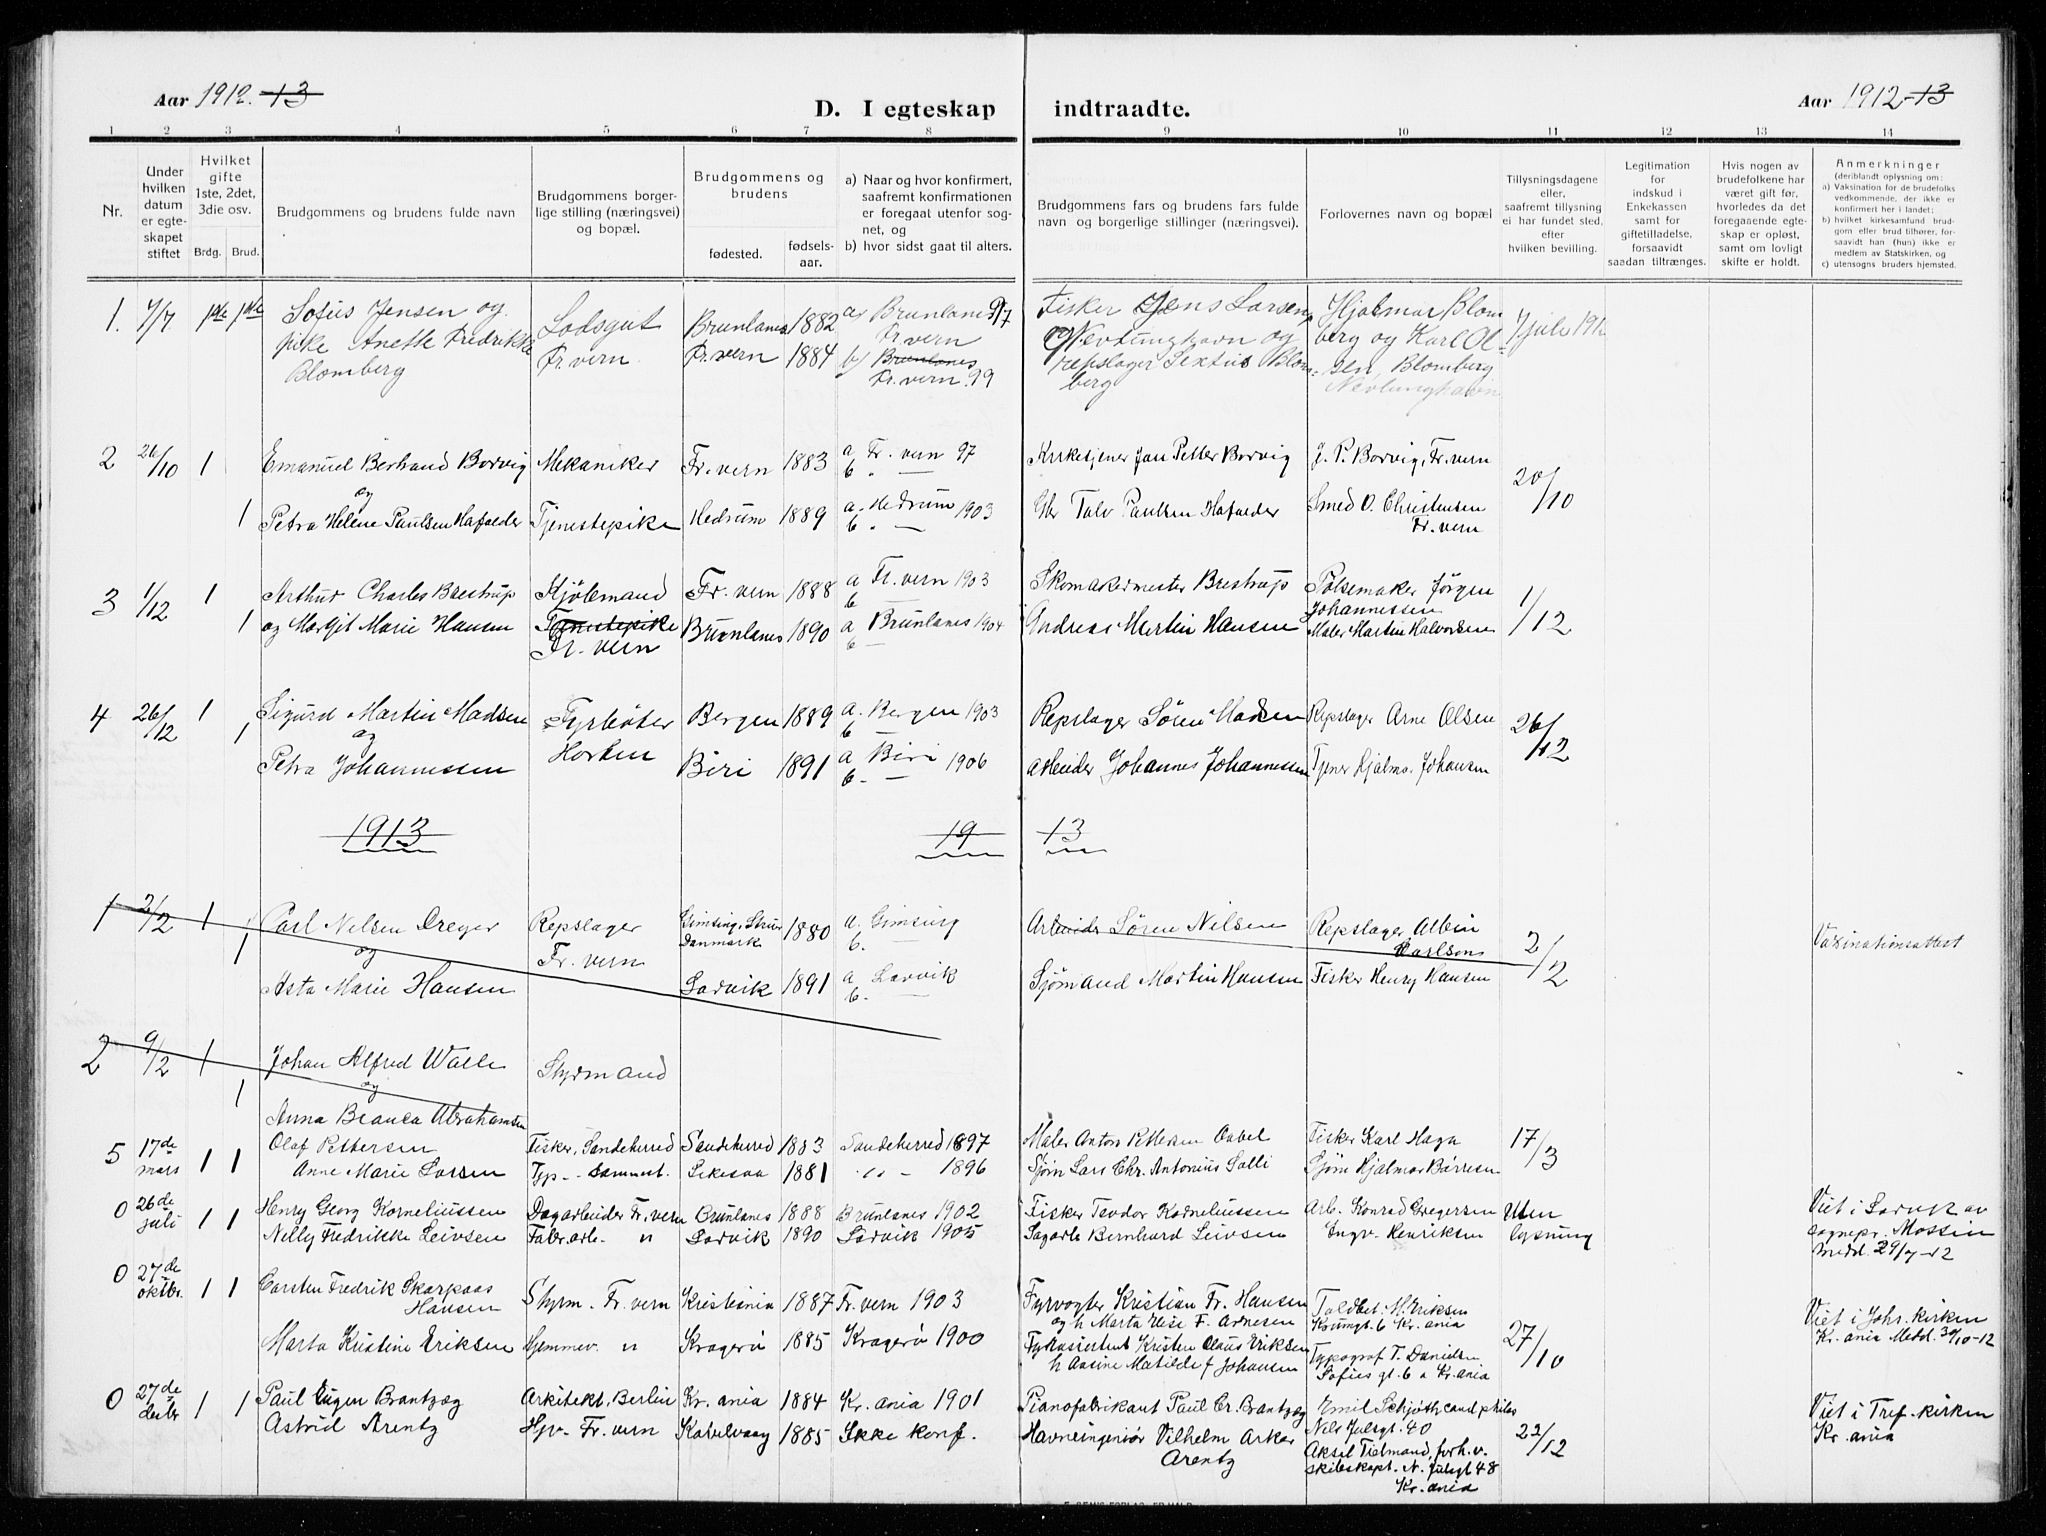 Aar 1912.-13
D. I egteskap indtraadte.
Aar 1912-13
1 2 3 4 5 6 7 8 9 10 11 12 13 14
Nr.
Under hvilken datum er egteskapet stiftet
Hvilket gifte 1ste, 2det, 3die osv.
Brdg. Brud.
Brudgommens og brudens fulde navn
Brudgommens borgerlige stilling (næringsvei) og bopæl.
Brudgommens og brudens
fødested.
fødselsaar.
a) Naar og hvor konfirmert, saafremt konfirmationen er foregaat utenfor sognet, og
b) hvor sidst gaat til alters.
Brudgommens fars og brudens fars fulde navn og borgerlige stillinger (næringsvei).
Forlovernes navn og bopæl
Tillysningsdagene eller, saafremt tillysning ei har fundet sted, efter hvilken bevilling.
Legitimation for indskud i Enkekassen samt for giftetilladelse, forsaavidt saadan tiltrænges.
Hvis nogen av brudefolkene har været gift før, hvorledes da det foregaaende egteskap er opløst, samt om lovligt skifte er holdt.
Anmerkninger
(deriblandt oplysning om:
a) Vaksination for de brudefolks vedkommende, der ikke er konfirmert her i landet;
b) hvilket kirkesamfund brudgom eller brud tilhører, forsaavidt han (hun) ikke er medlem av Statskirken, og
c) utensogns bruders hjemsted.
1. 7/7 1ste 1ste Sofus Jensen og Lodsgut Brunlanes 1882 a) Brunlanes 97 Fisker Jens Larsen Hjalmar Blom 7 juli 1912
pike Anette Fredrikke Fr. vern Fr. vern 1884 Fr. vern Nevlunghavn og berg og Karl Ol-
Blomberg b) Brunlanes repslager Sextus Blom- sen, Blomberg
Fr. vern. 99 berg Nevlunghavn
2 20/10 1 Emanuel Berhand Borvig Mekaniker Fr. vern 1883 a Fr. vern 97 Kirketjener Jan Petter Borvig J. P. Borvig, Fr. vern 20/10
og b. —
1 Petra Helene Paulsen Hafalder Tjenestepike Hedrum 1889 a. Hedrum 1903 Talv Paulsen Hafalder Smed O. Christensen
b. — Fr. vern
3 1/12 1 Arthur Charles Brestrup Kjøbmand Fr. vern 1888 a Fr. vern 1903 Skomakermester Brestrup Pølsemaker Jørgen 1/12
b — Johannessen
1 og Margit Marie Hansen Tjenestepike Brunlanes 1890 a Brunlanes 1904 Andreas Martin Hansen Maler Martin Halvorsen
Fr. vern b —
4 26/12 1 Sigurd Martin Madsen Fyrbøter Bergen 1889 a. Bergen 1903 Repslager Søren Madsen Repslager Arne Olsen 26/12
og Horten b —
1 Petra Johannessen Biri 1891 a Biri 1906 arbeider Johannes Johannessen Tjener Hjalm. Johansen
b. —
1913 19 13
1 2/2 1 Carl Nilsen Dreyer Repslager Gimsing, Struer 1880 a. Gimsing Arbeider Søren Nilsen Repslager Albin 2/2 Vaksinationsattest
og Fr. vern Danmark b. — Carlsons
1 Asta Marie Hansen Larvik 1891 a Larvik Sjømand Martin Hansen Fisker Henry Hansen
b. —
2 9/2 1 Johan Alfred Walle Styrmand
og
1 Anna Bianca Abrahamsen
5 17de mars 1 1 Olaf Pettersen Fisker, Sandeherred Sandeherred 1883 Sandeherred 1897 Maler Anton Pettersen Fisker Karl Haga 17/3
Anne Marie Larsen Typ- sammest. 1881 " - 1896 Sjøm Lars Chr. Antonius Salli Sjøm Hjalmar Børresen
0 26de juli 1 1 Henry Georg Korneliussen Dagarbeider Fr. vern Brunlanes 1888 Brunlanes 1902 Fisker Teodor Korneliussen Arb. Konrad Gregersen Uten Viet i Larvik av
Nelly Fredrikke Leivsen Fabr. arb. " Larvik 1890 Larvik 1905 Sagarb Bernhard Leivsen Engv. Henriksen lysning sognepr. Mossin
medd. 29/7-12
0 27de oktbr. 1 1 Carsten Fredrik Skarpaas Hansen Styrm. Fr. vern Kristiania 1887 Fr. vern 1903 Fyrvogter Kristian Fr. Hansen Toldbet. M. Eriksen Viet i Joh.kirken
og h Marta Elise F. Arnesen Krumgt. 6 Kr. ania Kr. ania Medd. 30/10-12
Marta Kristine Eriksen Hjemmev. " Kragerø 1885 Kragerø 1900 Fyrassistent Kristen Claus Eriksen Typograf T. Danielsen 27/10
h Aasine Matilde f Johansen Sofies gt. 6 a Kr. ania
0 27de decbr 1 1 Paul Eugen Brantzæg Arkitekt. Berlin Kr. ania 1884 Kr. ania 1901 Pianofabrikant Paul Cr. Brantzæg Emil Schjøth cand philos Viet i Tref. kirken
Astrid Arentz Hjv. Fr. vern Kabelvaag 1885 Ikke konf. Havneingeniør Vilhelm Arentz Nils Julsgt. 40 22/12 Kr. ania
Aksel Tielmand, forh. v.
skibskapt. N. Julsgt 48
Kr. ania